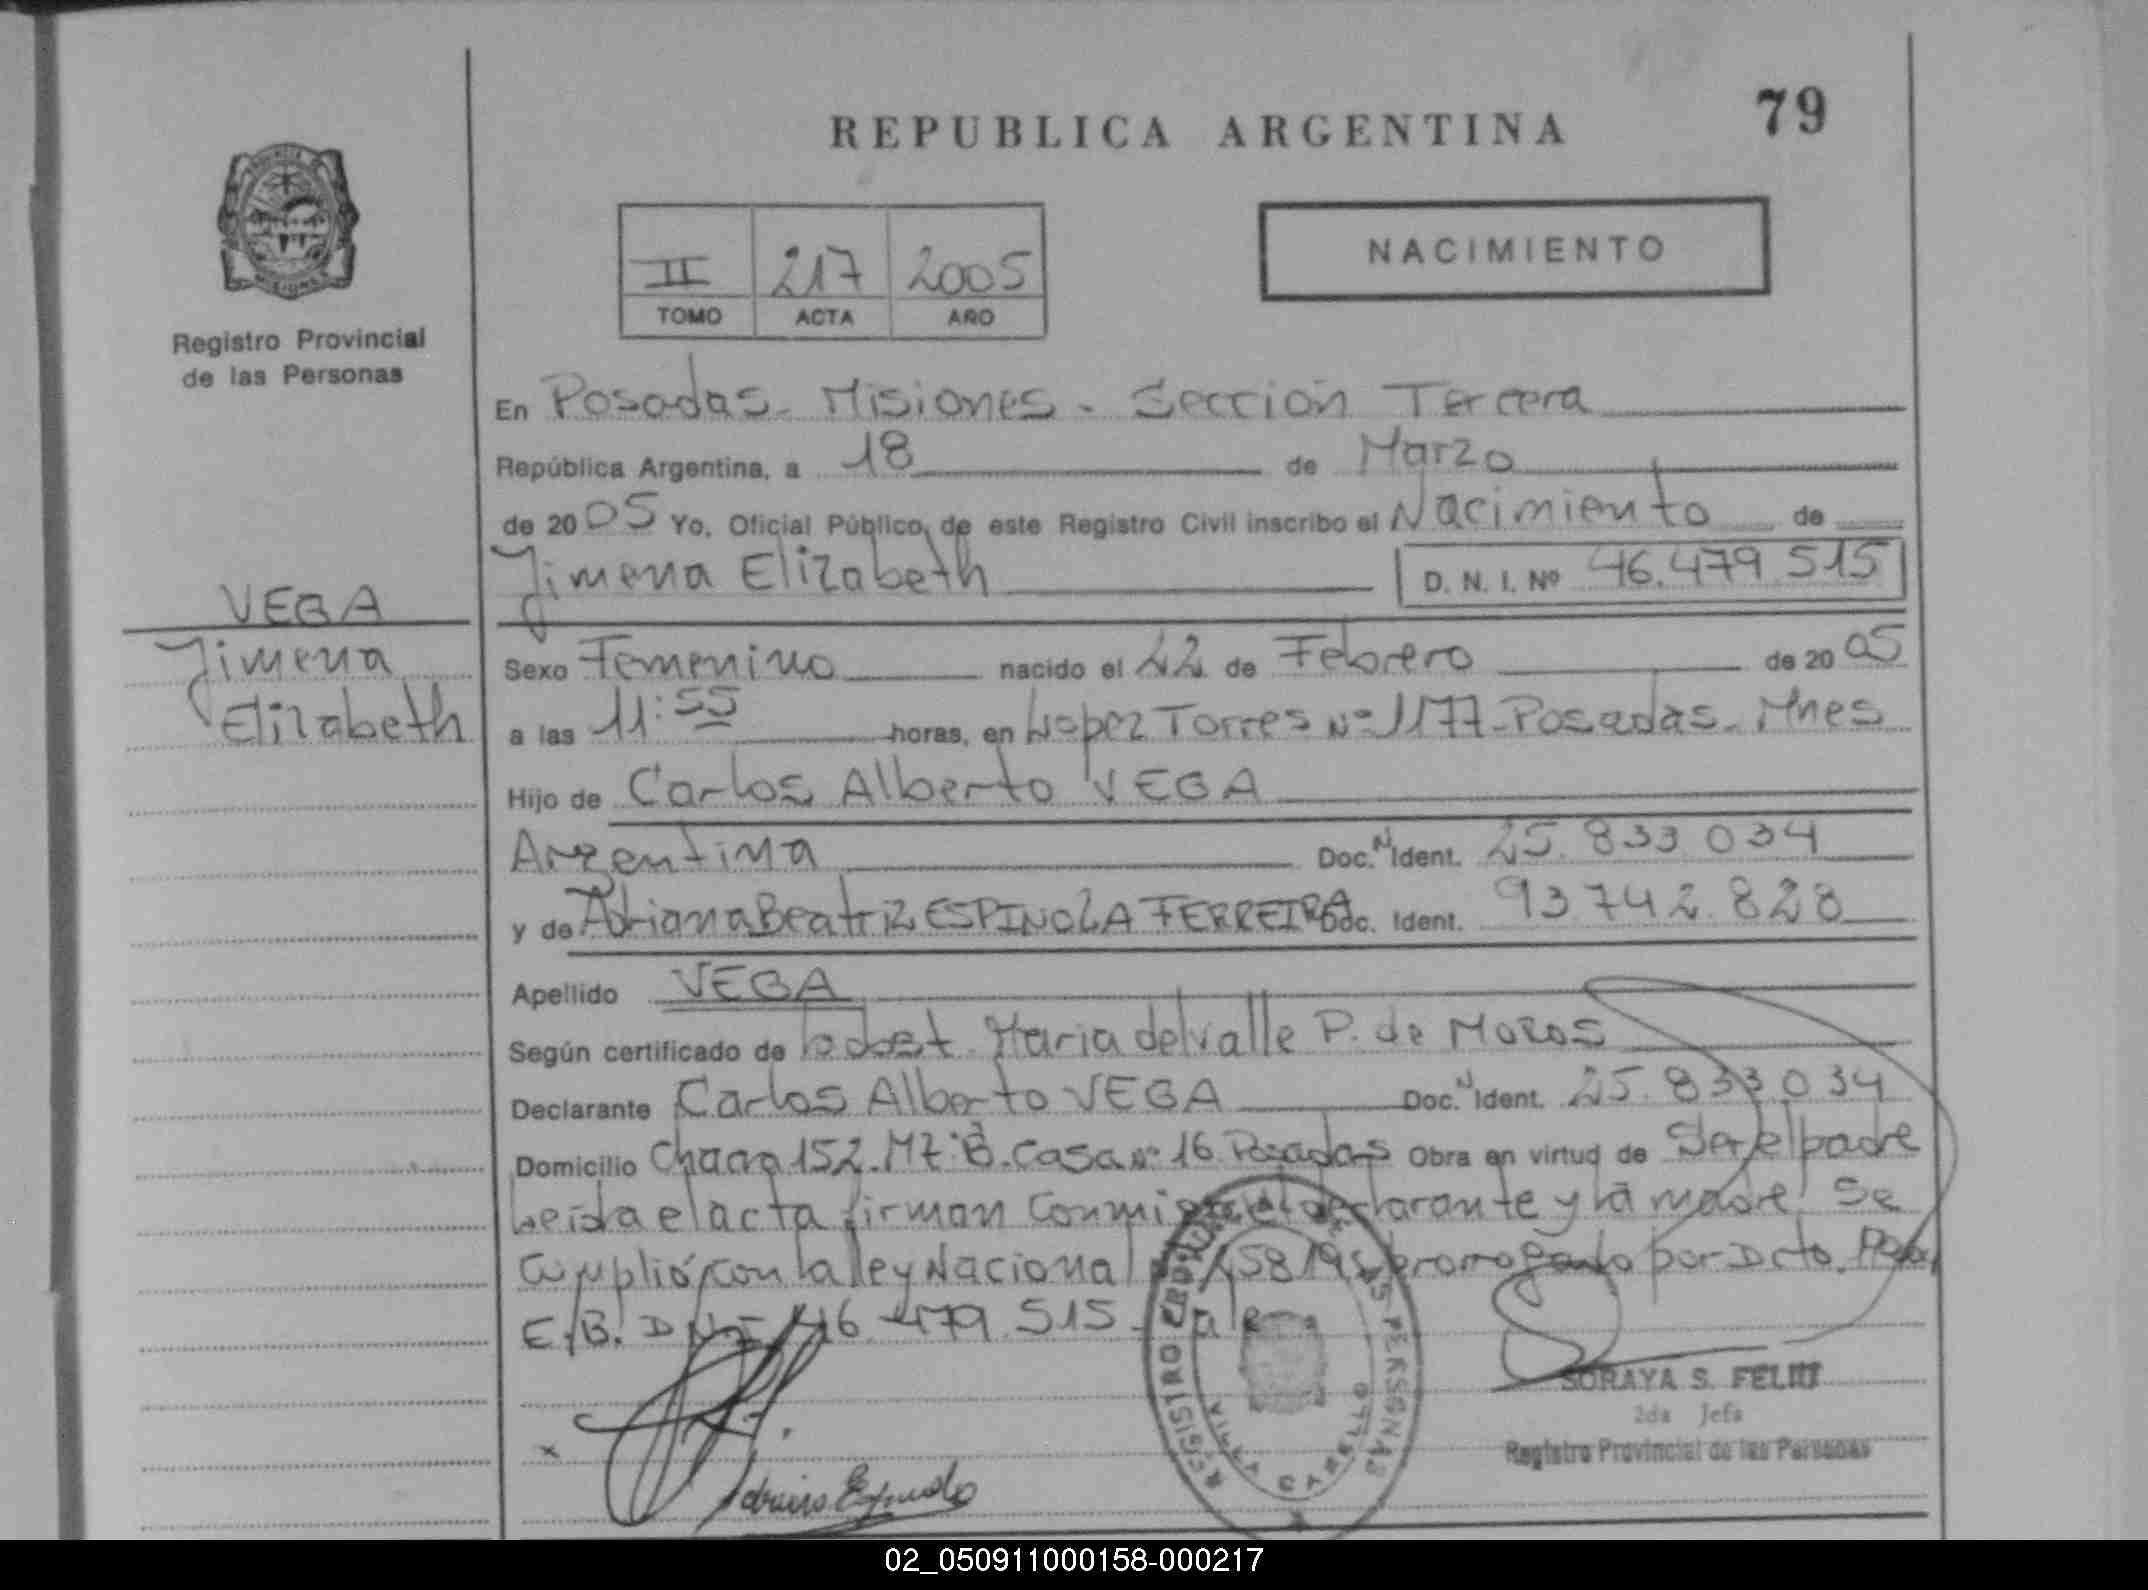 REPUBLICA ARGENTINA
79
NACIMIENTO
II 217 2005
TOMO ACTA AÑO
Registro Provincial
de las Personas
En Posadas - Misiones - Sección Tercera
República Argentina, a 18 de Marzo
de 2005 Yo, Oficial Público, de este Registro Civil inscribo el Nacimiento de
Jimena Elizabeth D. N. I. Nº 46.479.515
VEGA
Jimena
Elizabeth
Sexo Femenino nacido el 22 de Febrero de 2005
a las 11:55 horas, en López Torres Nº 1177 - Posadas - Mnes
Hijo de Carlos Alberto VEGA
Argentina Doc. N Ident. 25.833.034
y de Adriana Beatriz ESPINOLA FERREIRA Doc. Ident. 93.742.828
Apellido VEGA
Según certificado de Obst. Maria del Valle P. de
Declarante Carlos Alberto VEGA Doc. N Ident. 25.833.034
Domicilio Chacra 152. Mz. B. Casa Nº 16 Posadas Obra en virtud de Ser el padre
Leída el acta firman conmigo el declarante y la madre. Se
cumplió con la ley Nacional prorrogado por Dcto.
E.B. DNI 46.479.515 - Vale
REGISTRO PROVINCIAL DE LAS PERSONAS
Adriana Espinola
SORAYA S. FELIU
2da Jefa
Registro Provincial de las Personas
02_050911000158-000217